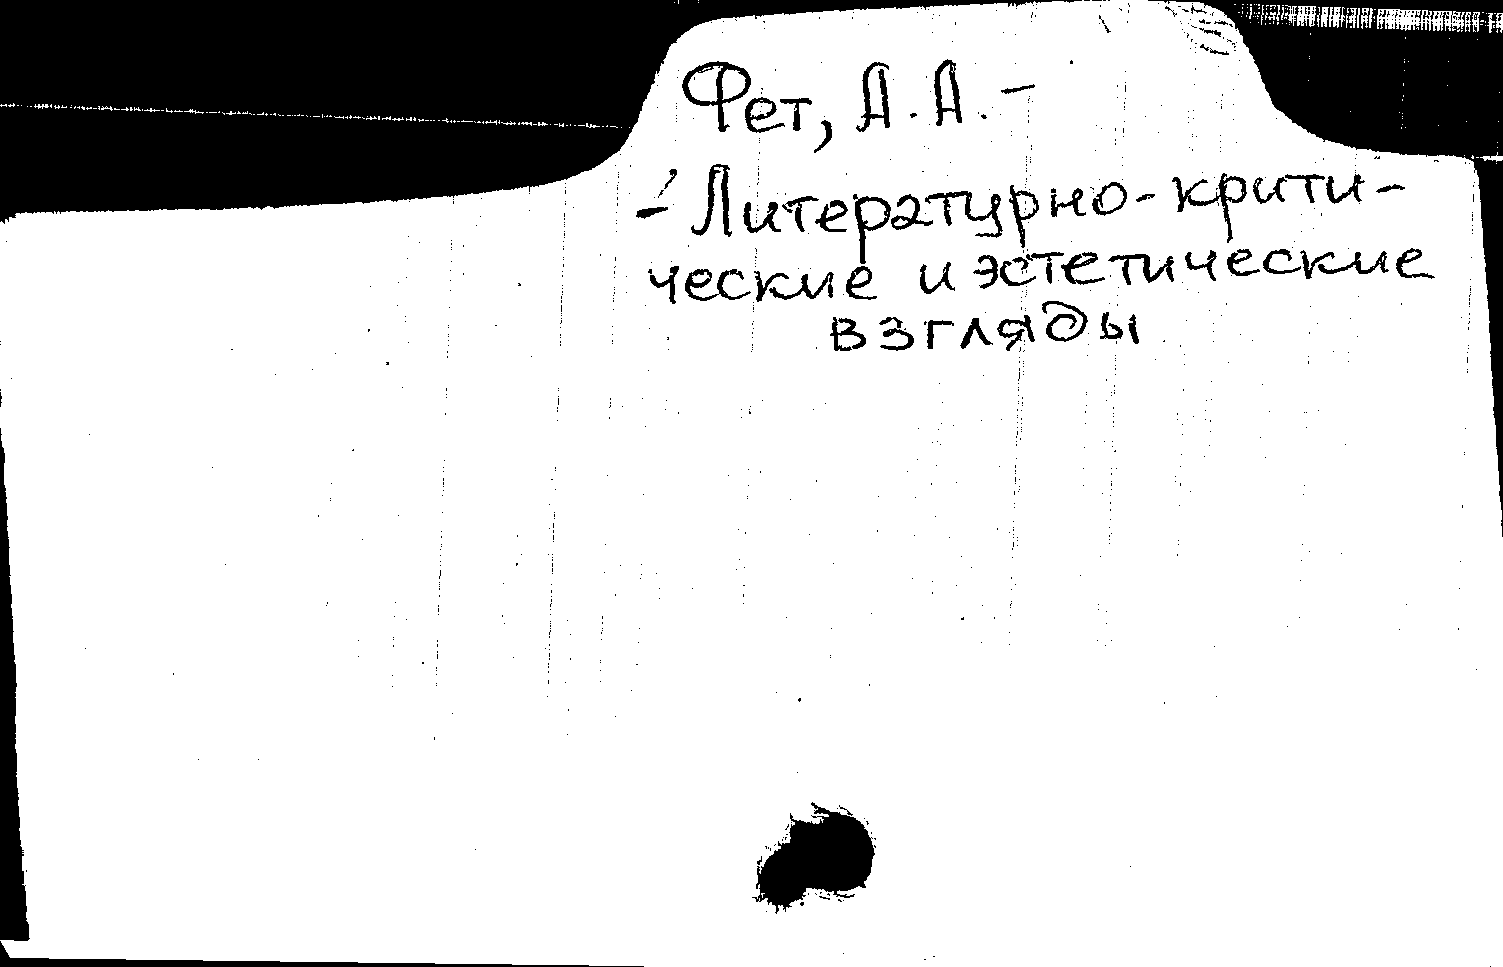 Фет, А.А. -
- Литературно-крити-
ческие и эстетические
взгляды